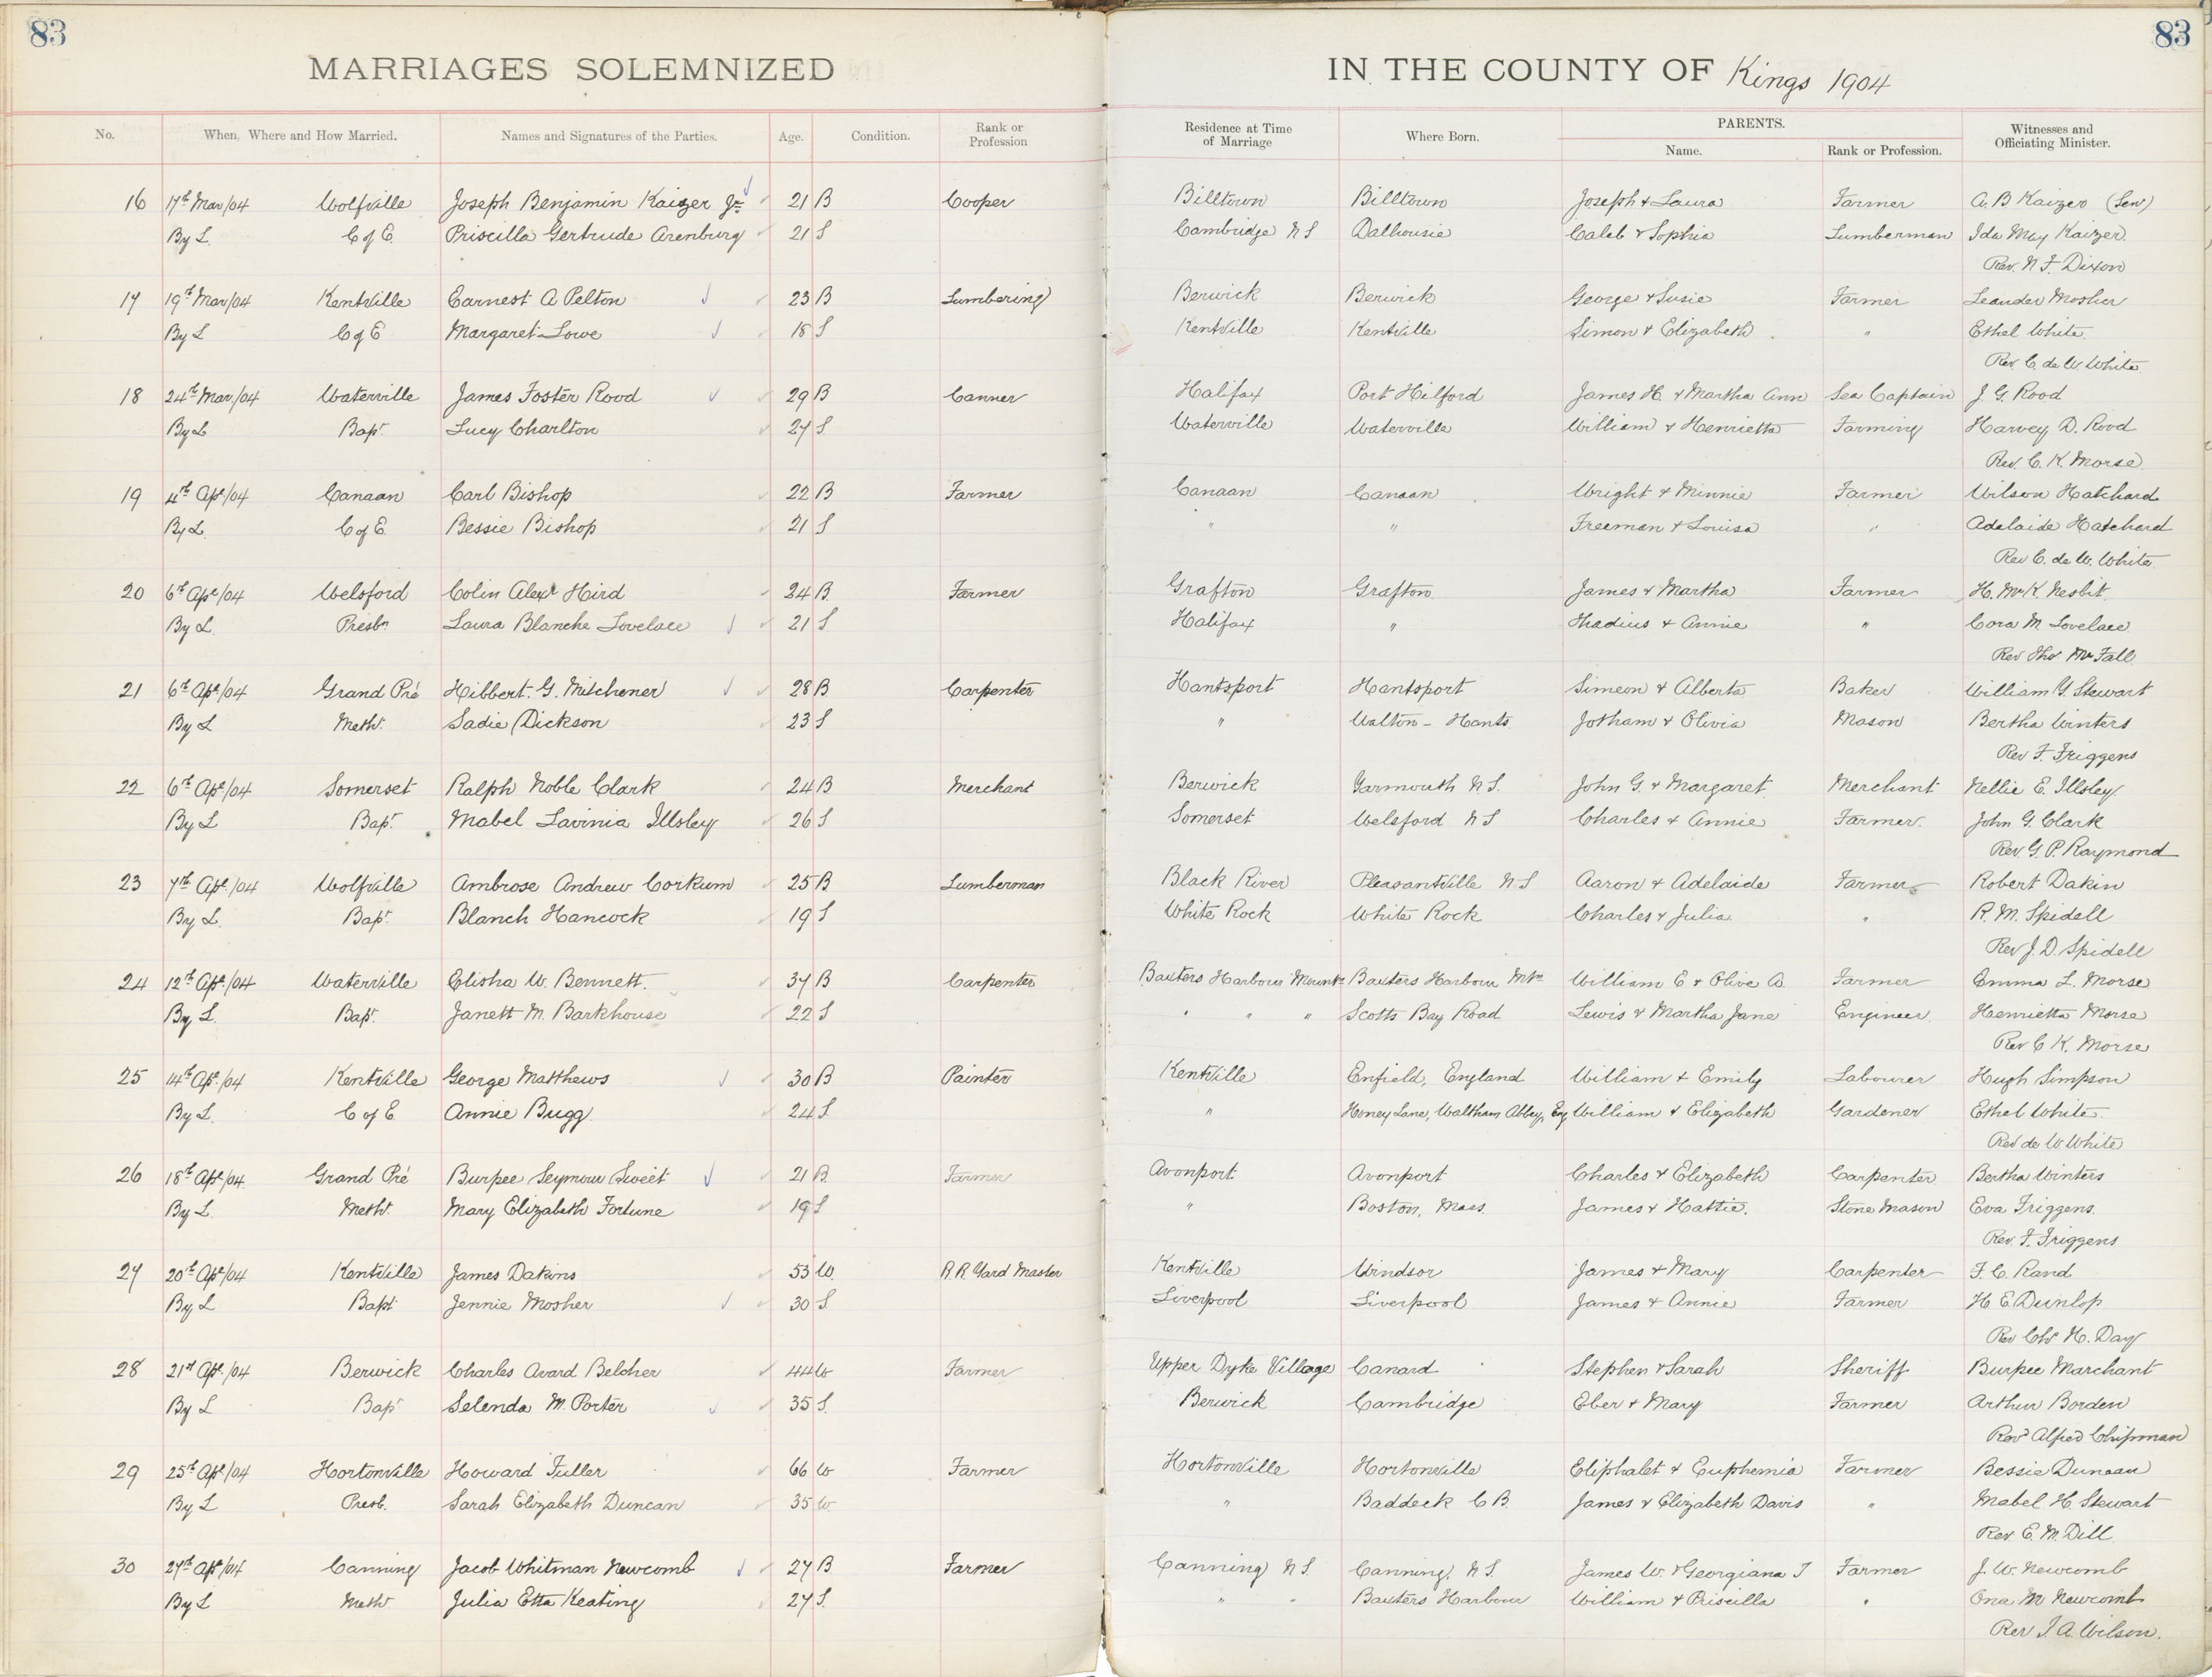 83
83
MARRIAGES SOLEMNIZED IN THE COUNTY OF Kings 1904
No. When, Where and How Married. Names and Signatures of the Parties. Age. Condition. Rank or Profession Residence at Time of Marriage Where Born. PARENTS. Name. Rank or Profession. Witnesses and Officiating Minister.
16 17th Mar/04 Wolfville Joseph Benjamin Kaizer Jr. 21 B Cooper Billtown Billtown Joseph & Laura Farmer A. B Kaizer (Sen)
By L. C of E. Priscilla Gertrude Arenburg 21 S Cambridge N S Dalhousie Caleb & Sophia Lumberman Ida May Kaizer
Rev. N. F. Dixon
17 19th Mar/04 Kentville Earnest A Pelton 23 B Lumbering Berwick Berwick George & Susie Farmer Leander Mosher
By L C of E Margaret Lowe 18 S Kentville Kentville Simon & Elizabeth " Ethel White
Rev. C. de W. White
18 24th Mar/04 Waterville James Foster Rood 29 B Canner Halifax Port Hilford James H. & Martha Ann Sea Captain J. G. Rood
By L Bapt. Lucy Charlton 27 S Waterville Waterville William & Henrietta Farming Harvey D. Rood
Rev. C. K. Morse
19 4th Apl/04 Canaan Carl Bishop 22 B Farmer Canaan Canaan Wright & Minnie Farmer Wilson Hatchard
By L. C of E. Bessie Bishop 21 S " " Freeman & Louisa " Adelaide Hatchard
Rev C. de W. White
20 6th Apl/04 Welsford Colin Alexr Hird 24 B Farmer Grafton Grafton James & Martha Farmer H. McK. Nesbit
By L. Presbn Laura Blanche Lovelace 21 S Halifax " Thadius & Annie " Cora M Lovelace
Rev Thos McFall
21 6th Apl/04 Grand Pré Hibbert. G. Mitchener 28 B Carpenter Hantsport Hantsport Simeon & Alberta Baker William Y. Stewart
By L Meth. Sadie Dickson 23 S " Walton - Hants Jotham & Olivia Mason Bertha Winters
Rev F. Friggens
22 6th Apl/04 Somerset Ralph Noble Clark 24 B Merchant Berwick Yarmouth N S. John G. & Margaret Merchant Nellie E. Illsley
By L Bapt. Mabel Lavinia Illsley 26 S Somerset Welsford N S Charles & Annie Farmer. John G. Clark
Rev. G. P. Raymond
23 7th Apl./04 Wolfville Ambrose Andrew Corkum 25 B Lumberman Black River Pleasantville N S Aaron & Adelaide Farmer Robert Dakin
By L. Bapt. Blanch Hancock 19 S White Rock White Rock Charles & Julia " R. M. Spidell
Rev J. D. Spidell
24 12th Apl/04 Waterville Elisha W. Bennett. 37 B Carpenter Baxters Harbour Mountn Baxters Harbour Mtn William E & Olive A. Farmer Emma L. Morse
By L. Bapt. Janett M. Barkhouse 22 S " " " Scotts Bay Road Lewis & Martha Jane Engineer Henrietta Morse
Rev C K. Morse
25 14th Apl./04 Kentville George Matthews 30 B Painter Kentville Enfield, England William & Emily Labourer Hugh Simpson
By L. C of E Annie Bugg 24 S. " Honey Lane, Waltham Abbey, Eng William & Elizabeth Gardener Ethel White.
Rev de W White
26 18th Apl/04 Grand Pré Burpee Seymour Sweet 21 B. Farmer Avonport Avonport Charles & Elizabeth Carpenter Bertha Winters
By L. Meth. Mary Elizabeth Fortune 19 S " Boston, Mass. James & Hattie. Stone Mason Eva Friggens.
Rev. F. Friggens
27 20th Apl/04 Kentville James Dakins 53 W. R. R. Yard Master Kentville Windsor James & Mary Carpenter F. C. Rand
By L Bapt Jennie Mosher 30 S Liverpool Liverpool James & Annie Farmer H E. Dunlop
Rev Chs H. Day
28 21st Apl./04 Berwick Charles Avard Belcher 44 W Farmer Upper Dyke Village Canard Stephen & Sarah Sheriff Burpee Marchant
By L Bapt Selenda M. Porter 35 S. Berwick Cambridge Eber & Mary Farmer Arthur Borden
Revd Alfred Chipman
29 25th Apl/04 Hortonville Howard Fuller 66 W Farmer Hortonville Hortonville Eliphalet & Euphemia Farmer Bessie Duncan
By L Presb. Sarah Elizabeth Duncan 35 W. " Baddeck C B. James & Elizabeth Davis " Mabel H. Stewart
Rev E. M. Dill
30 27th Apl/04 Canning Jacob Whitman Newcomb 27 B Farmer Canning N S. Canning N S. James W. & Georgiana T Farmer J. W. Newcomb
By L Meth Julia Etta Keating 27 S. " " Baxters Harbour William & Priscilla " Ona M Newcomb
Rev J. A. Wilson.